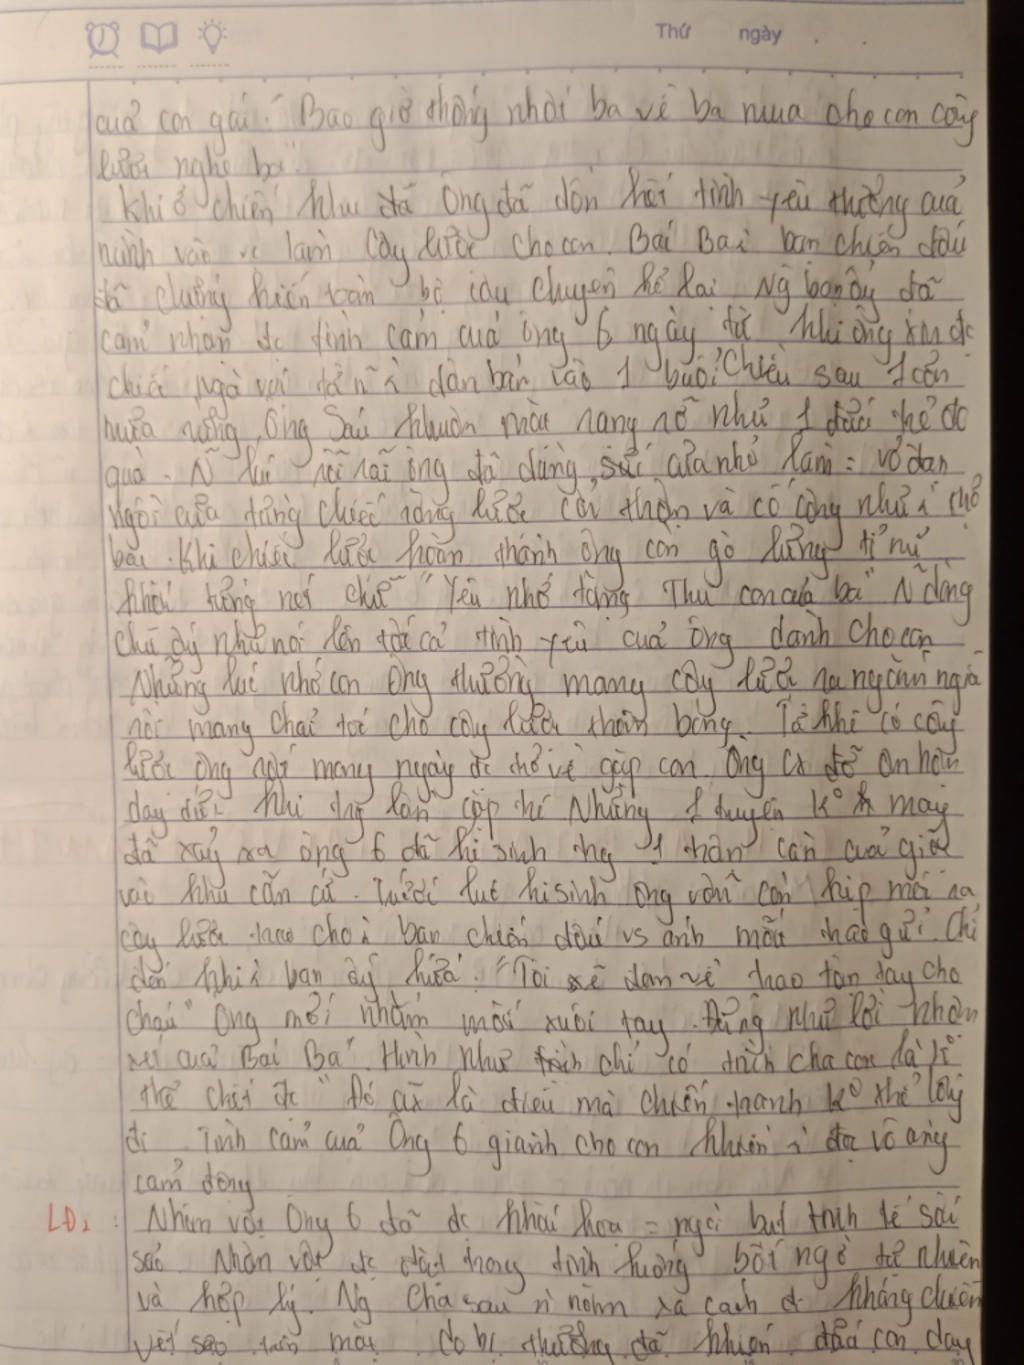 Thứ ngày . .
của con gái : "Bao giờ thống nhất ba về ba mua cho con cây
lược nghe ba".
Khi ở chiến khu đã Ông đã dồn hết tình yêu thương của
mình vào vc làm cây lược cho con. Bác Ba: bạn chiến đấu
đã chứng kiến toàn bộ câu chuyện kể lại. Ng bạn ấy đã
cảm nhận đc tình cảm của ông 6 ngay từ khi ông xin đc
chiếc ngà voi dân bản vào 1 buổi chiều sau 1 cơn
mưa rừng, Ông Sáu khuôn mặt rạng rỡ như 1 đứa trẻ đc
quà. N lúc rỗi rãi ông đã dùng cưa nhỏ làm = vỏ đạn
ngồi cưa từng chiếc răng lược cẩn thận và cố công như thợ
bạc. Khi chiếc lược hoàn thành ông còn gò lưng tỉ mỉ
khắc từng nét chữ "Yêu nhớ tặng Thu con của ba" N dòng
chữ ấy như nói lên tất cả tình yêu của ông dành cho con
Những lúc nhớ con Ông thường mang cây lược ra ngắm ngía
rồi mang chải tóc cho cây lược thêm bóng. Từ khi có cây
lược ông mong ngày đc trở về gặp con. Ông đỡ ân hận
day dứt khi Nhưng 1 chuyện k° may
đã xảy ra ông 6 đã hi sinh 1 trận càn của giặc
vào khu căn cứ. Trước lúc hi sinh ông vẫn còn kịp móc ra
cây lược trao cho bạn chiến đấu vs ánh mắt gửi. Chỉ
đến khi bạn ấy hứa: "Tôi sẽ đem về trao tận tay cho
cháu" Ông mới nhắm mắt xuôi tay. Đúng như lời nhận
xét của Bác Ba "Hình như chỉ có tình cha con là k°
thể chết đc" Đó là điều mà chiến tranh k° thể lấy
đi. Tình cảm của Ông 6 giành cho con khiến vô cùng
cảm động
LĐ2 : Nhân vật Ông 6 đã đc khắc họa = ngòi bút tinh tế sâu
sắc. Nhân vật đc đặt trong tình huống bất ngờ tự nhiên
và hợp lý. Ng cha sau n năm xa cách đi kháng chiến
vết sẹo trên mặt do bị thương đã khiến đứa con